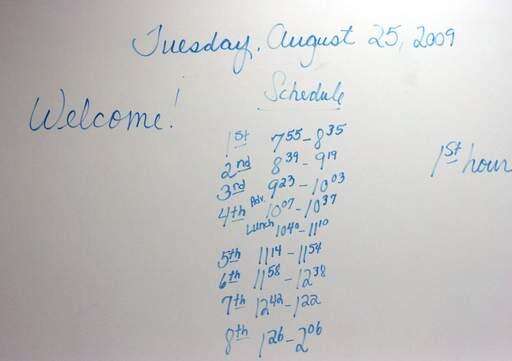 Tuesday, August 25, 2009
Welcome!
Schedule
1st 7:55 - 8:35
2nd 8:39 - 9:19
3rd 9:23 - 10:03
4th Adv. 10:07 - 10:37
Lunch 10:40 - 11:10
5th 11:14 - 11:54
6th 11:58 - 12:38
7th 12:42 - 1:22
8th 1:26 - 2:06
1st hour